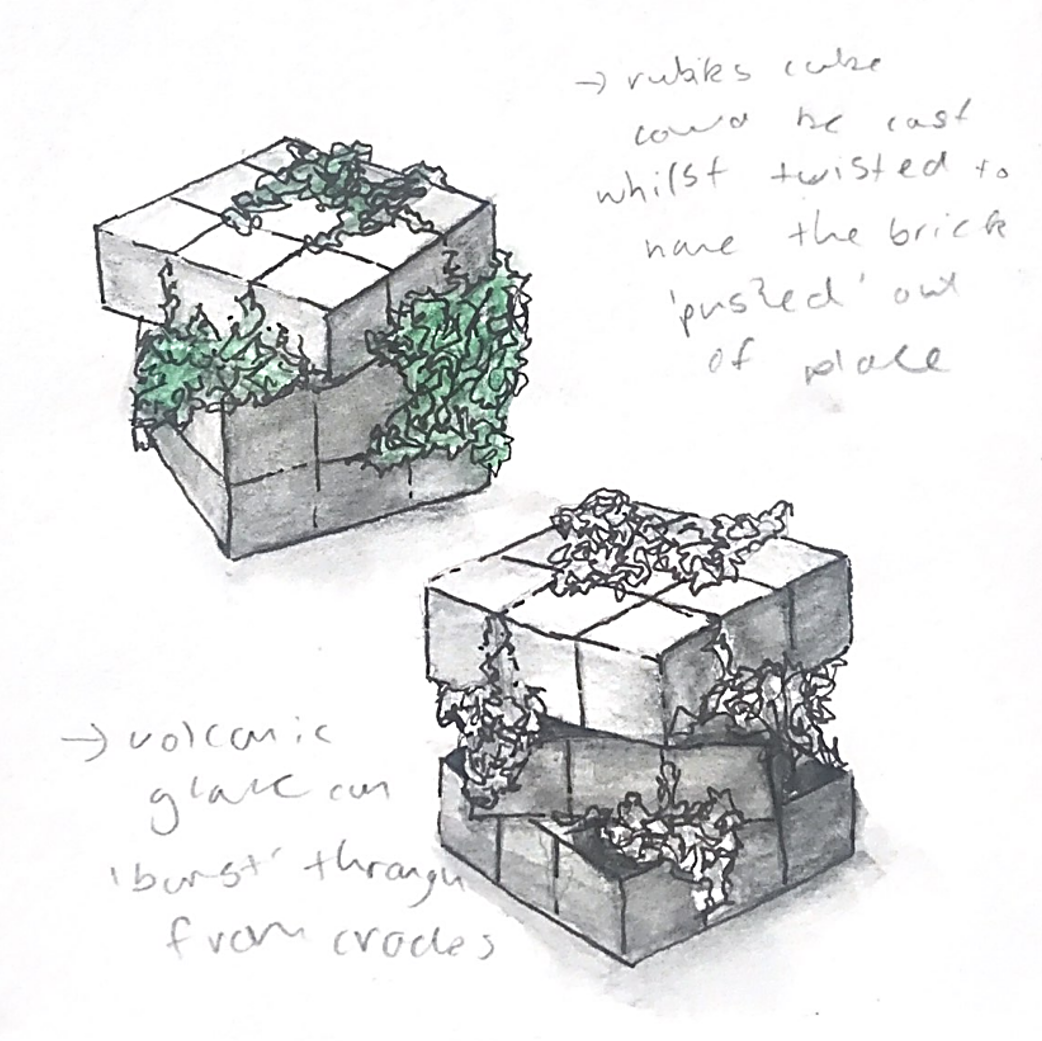 → rubiks cube
could be cast
whilst twisted to
have the brick
'pushed' out
of place
→ volcanic
glaze can
'burst' through
from cracks